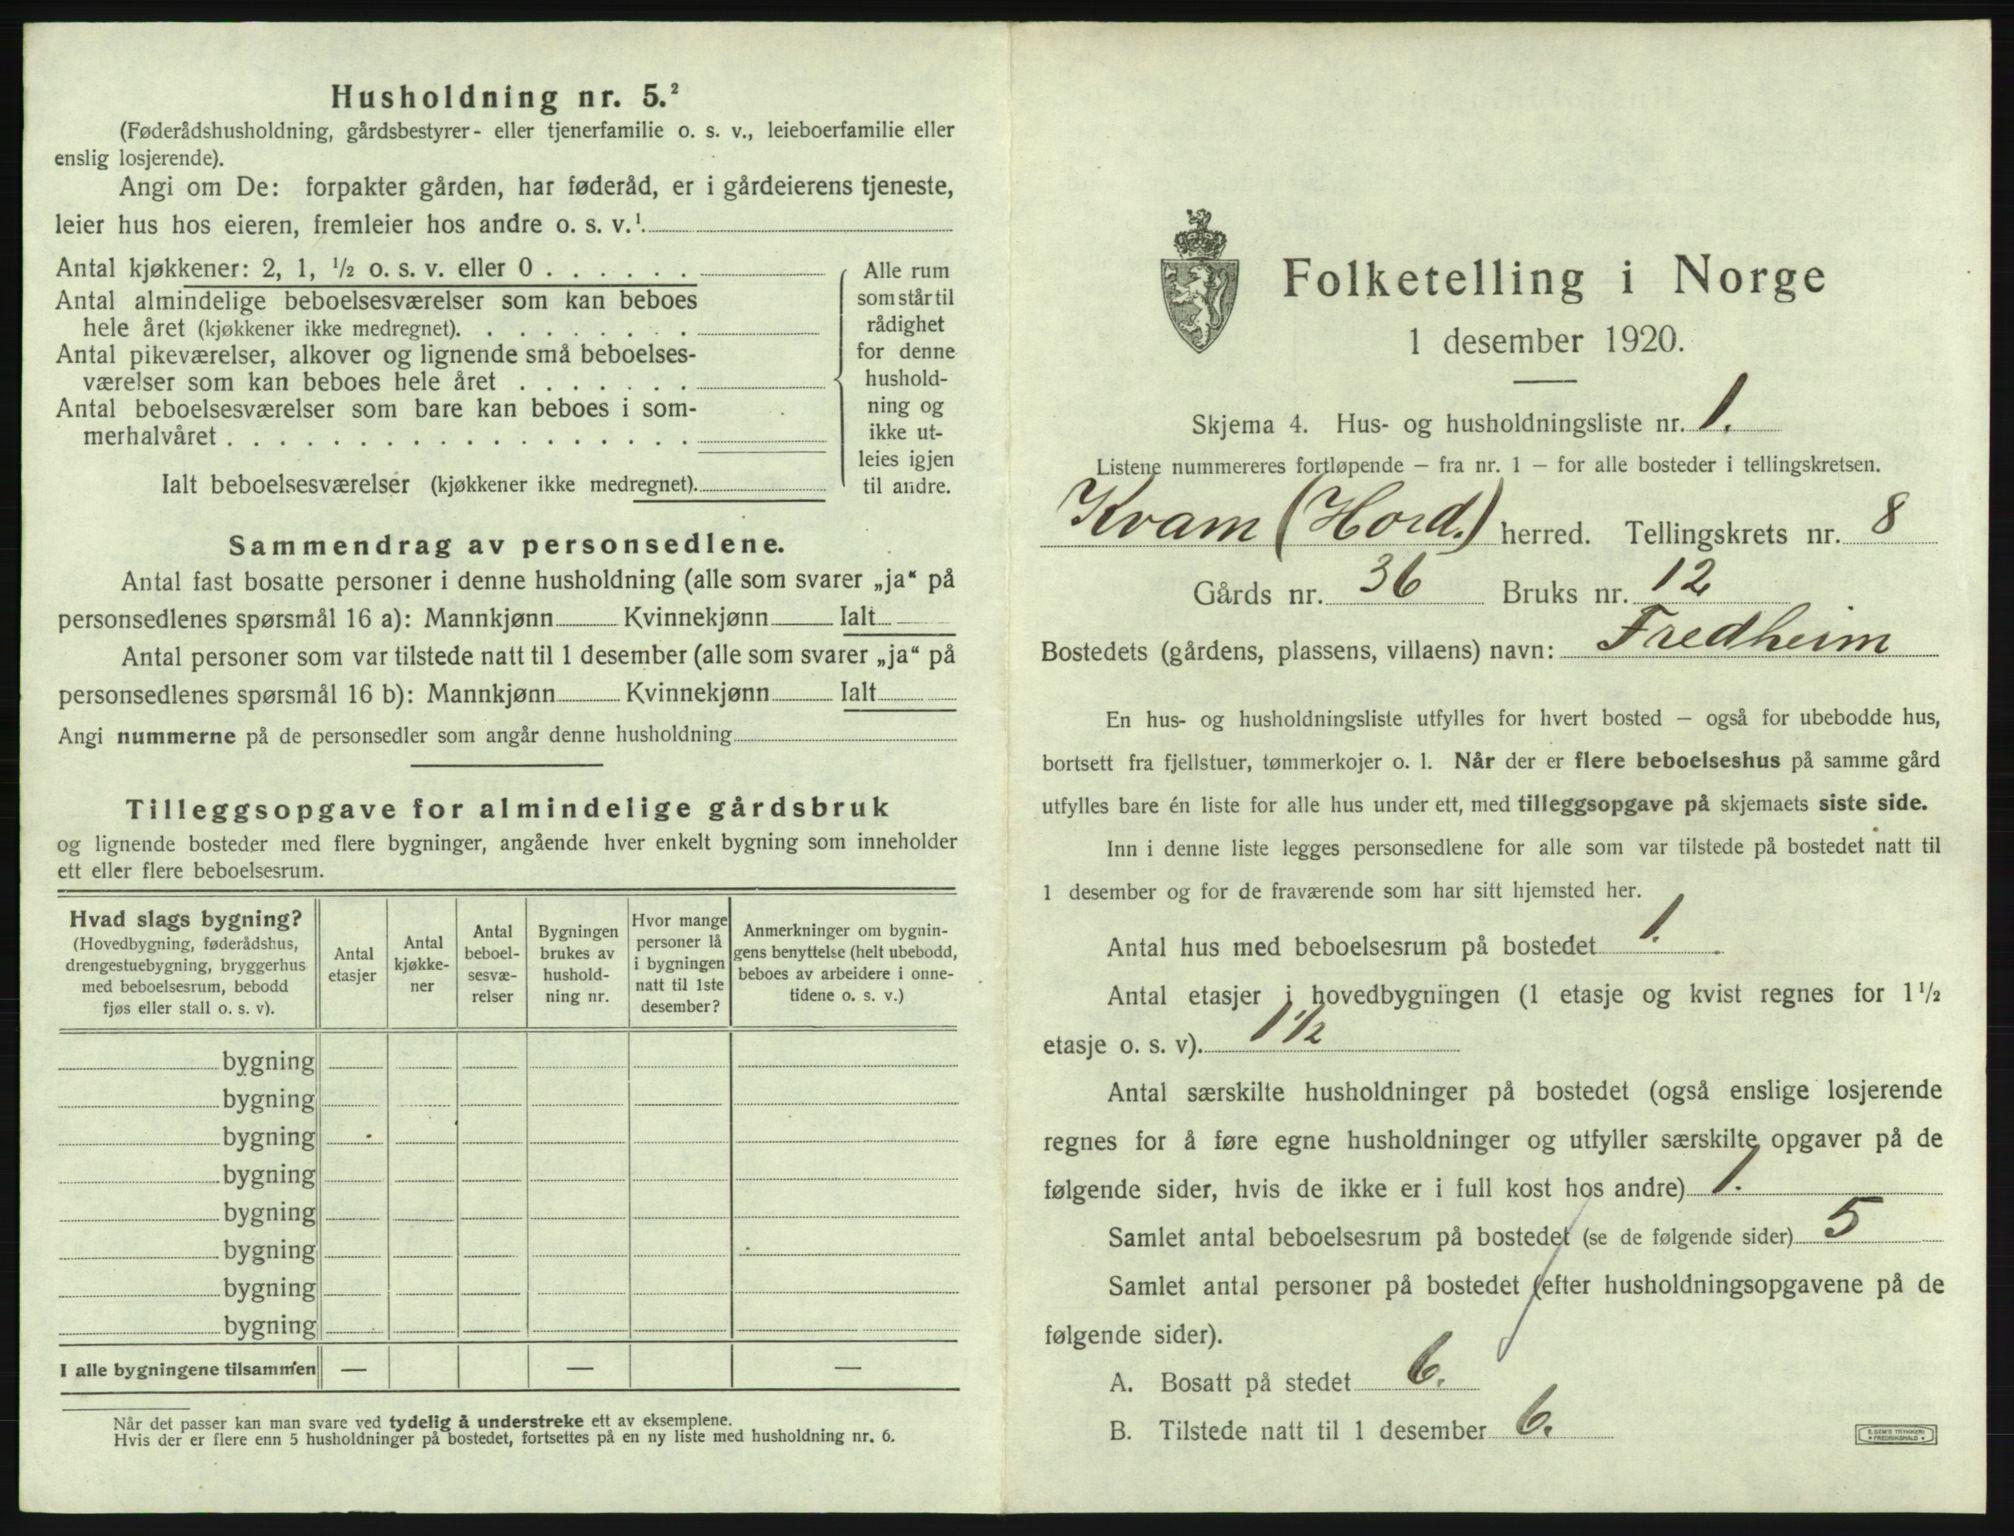 Husholdning nr. 5.²
(Føderådshusholdning, gårdsbestyrer- eller tjenerfamilie o. s. v., leieboerfamilie eller
enslig losjerende).
Angi om De: forpakter gården, har føderåd, er i gårdeierens tjeneste,
leier hus hos eieren, fremleier hos andre o. s. v.¹
Antal kjøkkener: 2, 1, ½ o. s. v. eller 0 . . . . . .
Antal almindelige beboelsesværelser som kan beboes
hele året (kjøkkener ikke medregnet). . . . . . . . .
Antal pikeværelser, alkover og lignende små beboelses-
værelser som kan beboes hele året . . . . . . .
Antal beboelsesværelser som bare kan beboes i som-
merhalvåret . . . . . . . . . . . . . . . . . .
Ialt beboelsesværelser (kjøkkener ikke medregnet).
Alle rum
som står til
rådighet
for denne
hushold-
ning og
ikke ut-
leies igjen
til andre.
Sammendrag av personsedlene.
Antal fast bosatte personer i denne husholdning (alle som svarer „ja“ på
personsedlenes spørsmål 16 a): Mannkjønn Kvinnekjønn Ialt
Antal personer som var tilstede natt til 1 desember (alle som svarer „ja“ på
personsedlenes spørsmål 16 b): Mannkjønn Kvinnekjønn Ialt
Angi nummerne på de personsedler som angår denne husholdning
Tilleggsopgave for almindelige gårdsbruk
og lignende bosteder med flere bygninger, angående hver enkelt bygning som inneholder
ett eller flere beboelsesrum.
Hvad slags bygning?
(Hovedbygning, føderådshus,
drengestuebygning, bryggerhus
med beboelsesrum, bebodd
fjøs eller stall o. s. v).
Antal
etasjer
Antal
kjøkke-
ner
Antal
beboel-
sesvæ-
relser
Bygningen
brukes av
hushold-
ning nr.
Hvor mange
personer lå
i bygningen
natt til 1ste
desember?
Anmerkninger om bygnin-
gens benyttelse (helt ubebodd,
beboes av arbeidere i onne-
tidene o. s. v.)
bygning
bygning
bygning
bygning
bygning
bygning
bygning
bygning
I alle bygningene tilsammen — — —
Når det passer kan man svare ved tydelig å understreke ett av eksemplene.
Hvis der er flere enn 5 husholdninger på bostedet, fortsettes på en ny liste med husholdning nr. 6.
Folketelling i Norge
1 desember 1920.
Skjema 4. Hus- og husholdningsliste nr. 1.
Listene nummereres fortløpende – fra nr. 1 – for alle bosteder i tellingskretsen.
Kvam (Hord.) herred. Tellingskrets nr. 8
Gårds nr. 36 Bruks nr. 12
Bostedets (gårdens, plassens, villaens) navn: Fredheim
En hus- og husholdningsliste utfylles for hvert bosted – også for ubebodde hus,
bortsett fra fjellstuer, tømmerkojer o. l. Når der er flere beboelseshus på samme gård
utfylles bare én liste for alle hus under ett, med tilleggsopgave på skjemaets siste side.
Inn i denne liste legges personsedlene for alle som var tilstede på bostedet natt til
1 desember og for de fraværende som har sitt hjemsted her.
Antal hus med beboelsesrum på bostedet 1.
Antal etasjer i hovedbygningen (1 etasje og kvist regnes for 1½
etasje o. s. v). 1½
Antal særskilte husholdninger på bostedet (også enslige losjerende
regnes for å føre egne husholdninger og utfyller særskilte opgaver på de
følgende sider, hvis de ikke er i full kost hos andre) 1.
Samlet antal beboelsesrum på bostedet (se de følgende sider) 5
Samlet antal personer på bostedet (efter husholdningsopgavene på de
følgende sider).
A. Bosatt på stedet 6.
B. Tilstede natt til 1 desember 6.
E. SEM'S TRYKKERI
FREDRIKSHALD